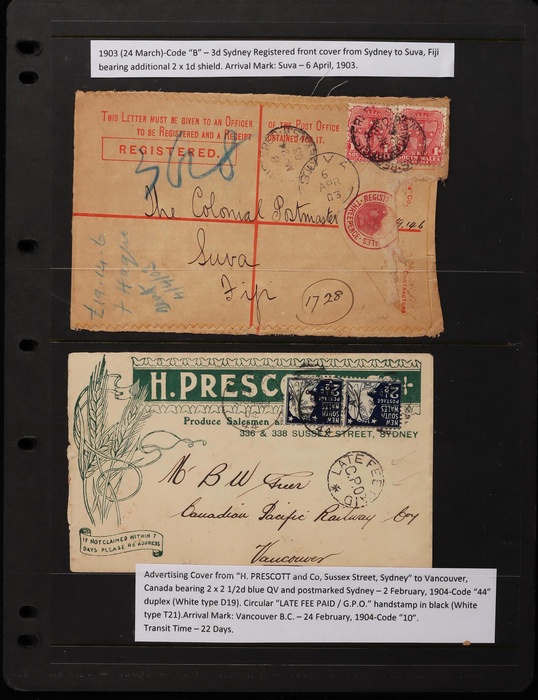 1903 (24 March)-Code "B" – 3d Sydney Registered front cover from Sydney to Suva, Fiji
bearing additional 2 x 1d shield. Arrival Mark: Suva – 6 April, 1903.
THIS LETTER MUST BE GIVEN TO AN OFFICER OF THE POST OFFICE
TO BE REGISTERED AND A RECEIPT OBTAINED FOR IT.
REGISTERED.
6
APR
03
The Colonial Postmaster
Suva
Fiji
1728
£19.14.6
H. PRESCO
Produce Salesmen a
336 & 338 SUSSEX STREET, SYDNEY
NEW
SOUTH
WALES
POSTAGE
2½D
NEW
SOUTH
WALES
POSTAGE
2½D
LATE FEE PAID
G.P.O.
Mr B W Greer
Canadian Pacific Railway Coy
Vancouver
IF NOT CLAIMED WITHIN 7
DAYS PLEASE RE ADDRESS
Advertising Cover from "H. PRESCOTT and Co, Sussex Street, Sydney" to Vancouver,
Canada bearing 2 x 2 1/2d blue QV and postmarked Sydney – 2 February, 1904-Code "44"
duplex (White type D19). Circular "LATE FEE PAID / G.P.O." handstamp in black (White
type T21).Arrival Mark: Vancouver B.C. – 24 February, 1904-Code "10".
Transit Time – 22 Days.